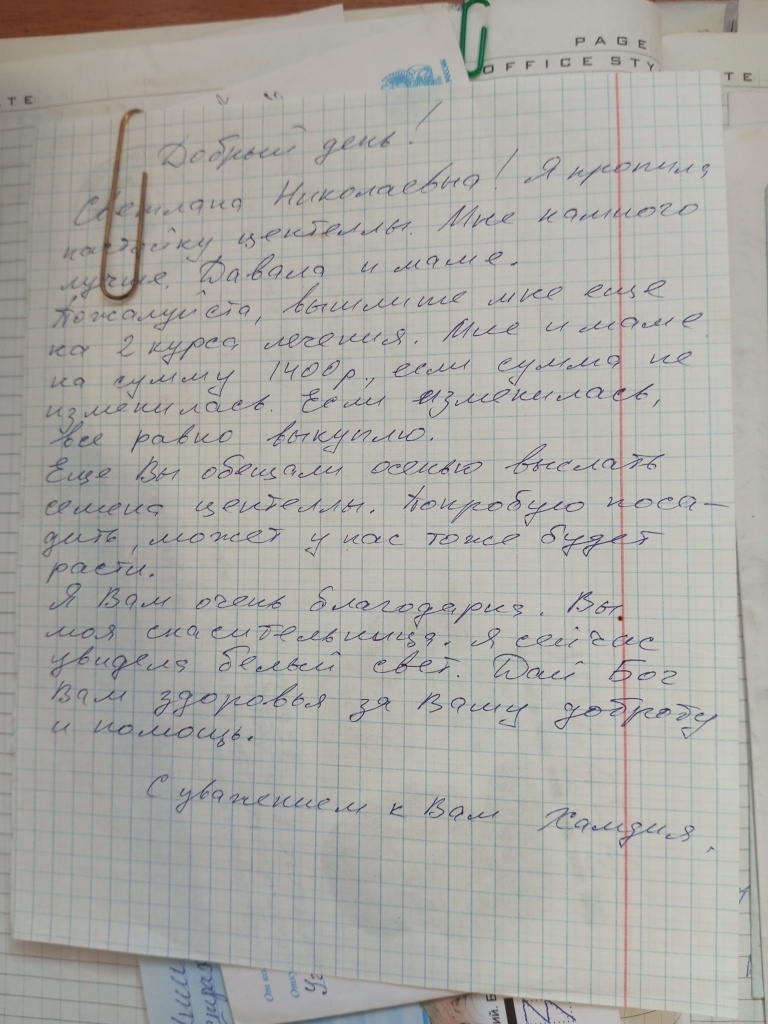 PAGE
OFFICE STY
TE
TE
Добрый день!
Светлана Николаевна! Я пропила
настойку центеллы. Мне намного
лучше. Давала и маме.
Пожалуйста, вышлите мне еще
на 2 курса лечения. Мне и маме
на сумму 1400р., если сумма не
изменилась. Если изменилась,
все равно выкуплю.
Еще Вы обещали осенью выслать
семена центеллы. Попробую поса-
дить, может у нас тоже будет
расти.
Я Вам очень благодарна. Вы
моя спасительница. Я сейчас
увидела белый свет. Дай Бог
Вам здоровья за Вашу доброту
и помощь.
С уважением к Вам Хамдия.